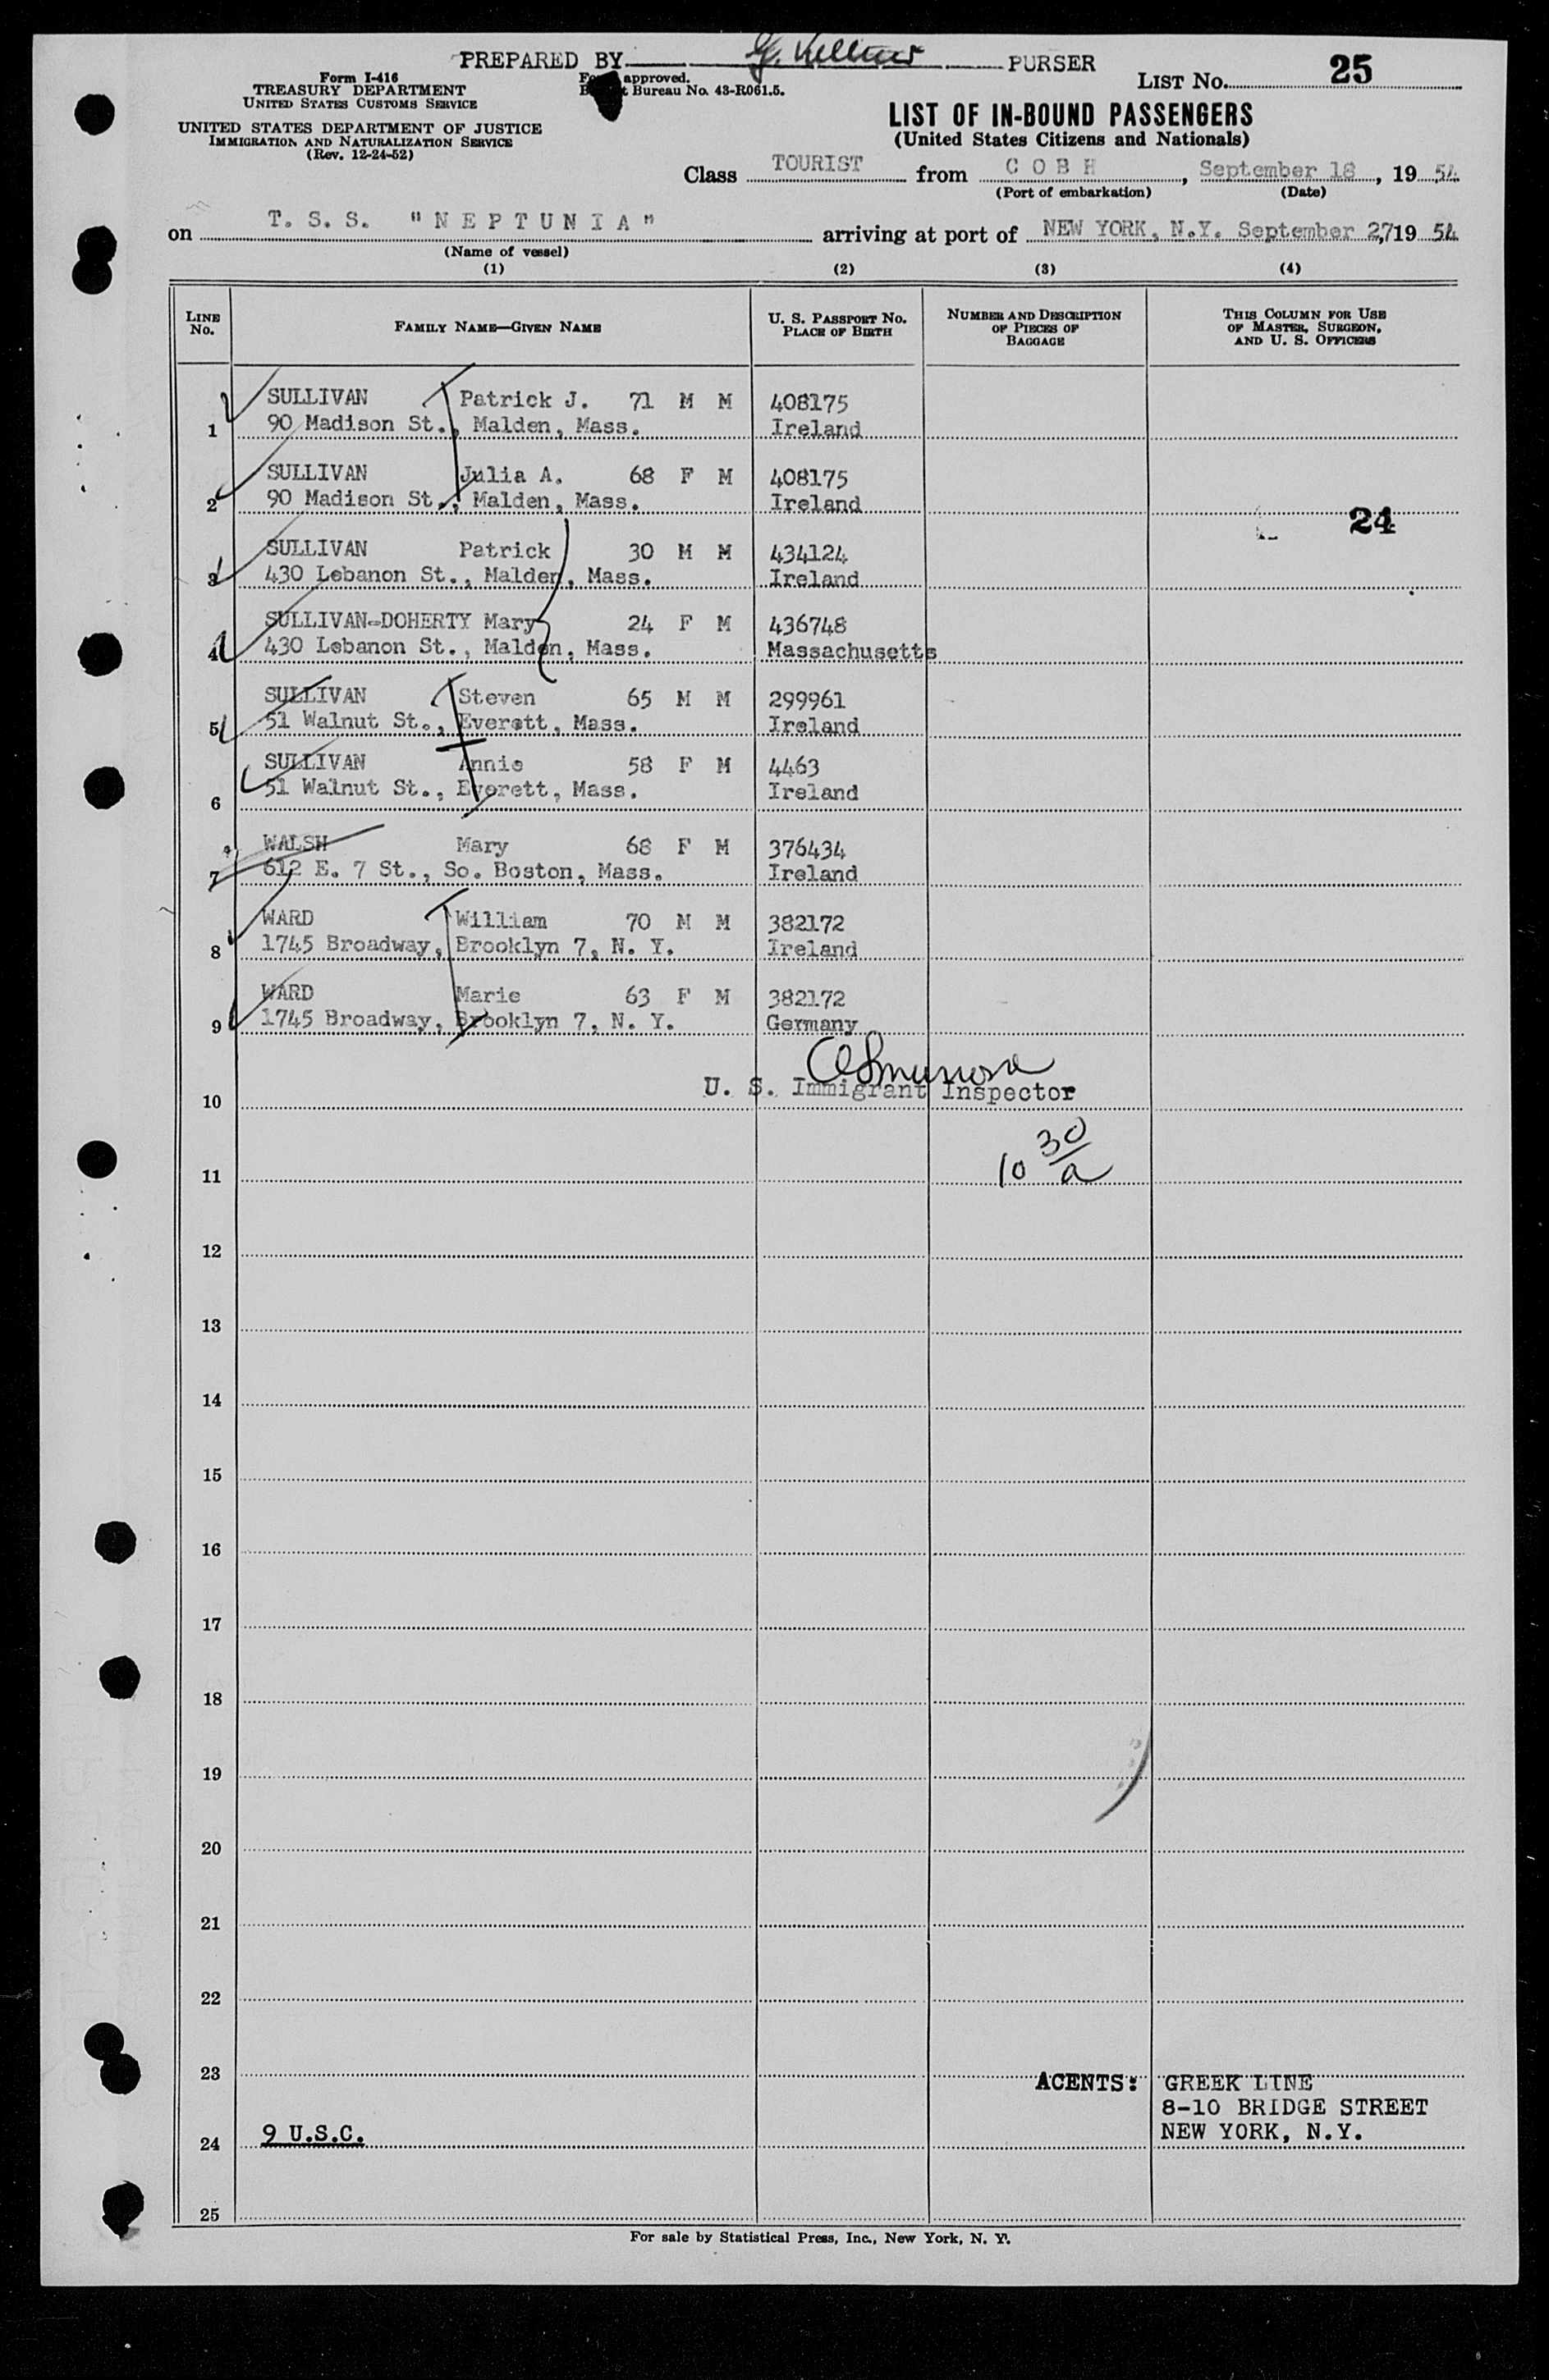 PREPARED BY G. Kellner PURSER
Form I-416
TREASURY DEPARTMENT
UNITED STATES CUSTOMS SERVICE
approved.
Bureau No. 43-R061.5.
LIST No. 25
UNITED STATES DEPARTMENT OF JUSTICE
IMMIGRATION AND NATURALIZATION SERVICE
(Rev. 12-24-52)
LIST OF IN-BOUND PASSENGERS
(United States Citizens and Nationals)
Class TOURIST from C O B H, September 18, 19 54
(Port of embarkation) (Date)
on T. S. S. "N E P T U N I A" arriving at port of NEW YORK, N.Y. September 27, 19 54
(Name of vessel)
(1) (2) (3) (4)
LINE No. FAMILY NAME—GIVEN NAME U. S. PASSPORT No. PLACE OF BIRTH NUMBER AND DESCRIPTION OF PIECES OF BAGGAGE THIS COLUMN FOR USE OF MASTER, SURGEON, AND U. S. OFFICERS
SULLIVAN Patrick J. 71 M M 408175
1 90 Madison St., Malden, Mass. Ireland
SULLIVAN Julia A. 68 F M 408175
2 90 Madison St., Malden, Mass. Ireland
24
SULLIVAN Patrick 30 M M 434124
3 430 Lebanon St., Malden, Mass. Ireland
SULLIVAN-DOHERTY Mary 24 F M 436748
4 430 Lebanon St., Malden, Mass. Massachusetts
SULLIVAN Steven 65 M M 299961
5 51 Walnut St., Everett, Mass. Ireland
SULLIVAN Annie 58 F M 4463
51 Walnut St., Everett, Mass. Ireland
6
WALSH Mary 68 F M 376434
7 612 E. 7 St., So. Boston, Mass. Ireland
WARD William 70 M M 382172
8 1745 Broadway, Brooklyn 7, N. Y. Ireland
WARD Marie 63 F M 382172
9 1745 Broadway, Brooklyn 7, N. Y. Germany
U. S. Immigrant Inspector
10
10 30/a
11
12
13
14
15
16
17
18
19
20
21
22
23 AGENTS: GREEK LINE
8-10 BRIDGE STREET
24 9 U.S.C. NEW YORK, N.Y.
25
For sale by Statistical Press, Inc., New York, N. Y.